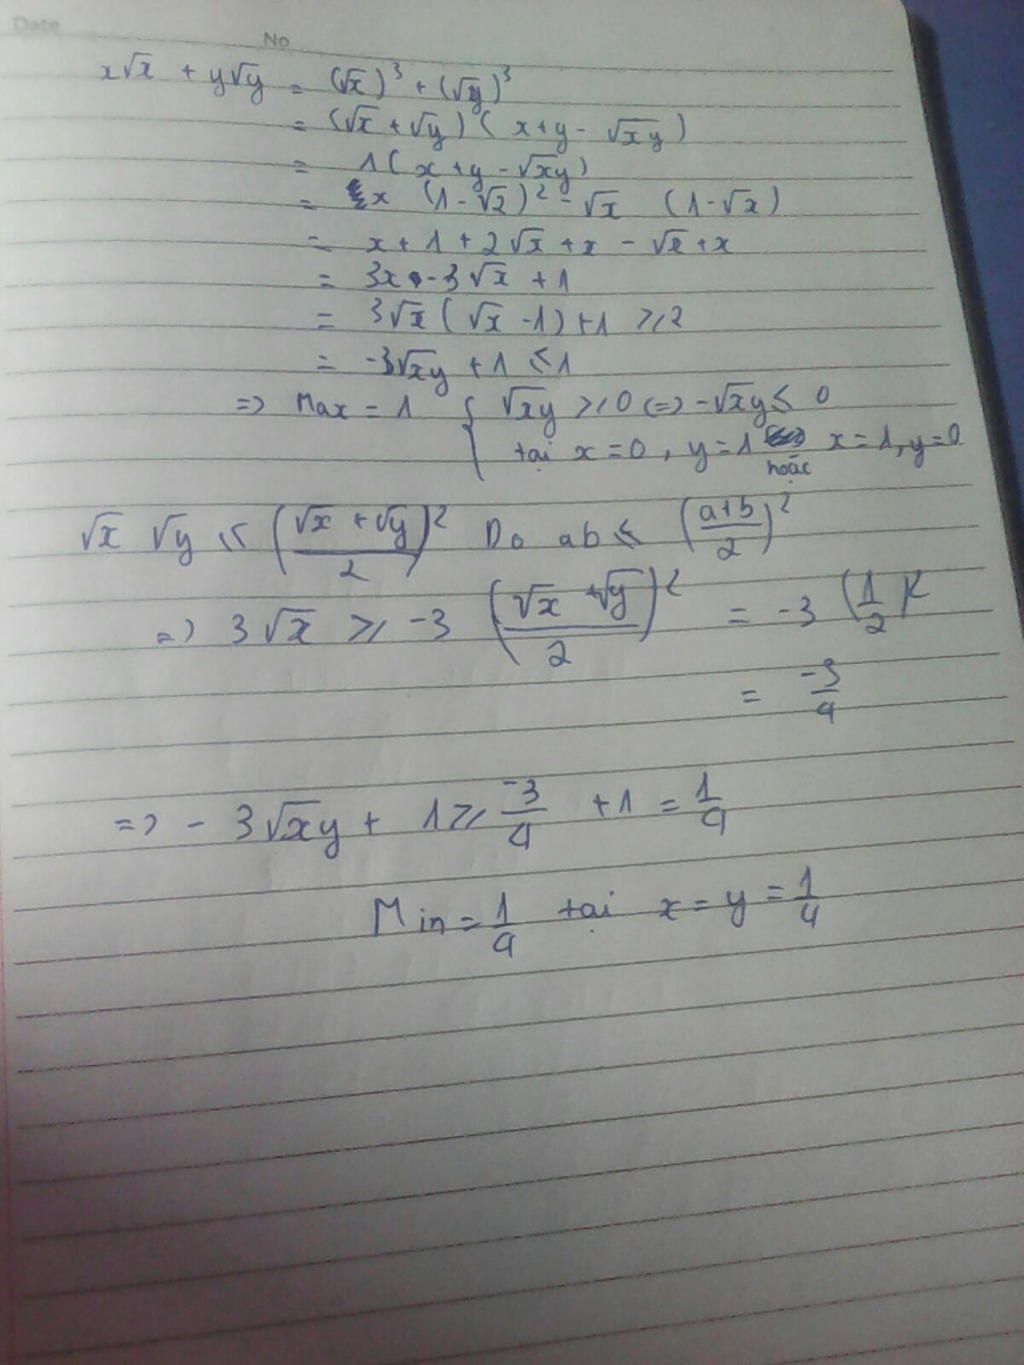 Date
No
x√x + y√y = (√x)³ + (√y)³
= (√x + √y) (x+y - √xy)
= 1(x+y-√xy)
= x (1-√x)² - √x (1-√x)
= x + 1 + 2√x + x - √x + x
= 3x - 3√x + 1
= 3√x (√x - 1) + 1 ≥ 2
= -3√xy + 1 ≤ 1
=> Max = 1 { √xy ≥ 0 (=> -√xy ≤ 0
tại x = 0, y = 1 hoặc x = 1, y = 0
√x √y ≤ ((√x + √y)/2)² Do ab ≤ ((a+b)/2)²
=> 3√x ≥ -3 ((√x + √y)/2)² = -3 (1/2)²
= -3/4
=> - 3√xy + 1 ≥ -3/4 + 1 = 1/4
Min = 1/4 tại x = y = 1/4